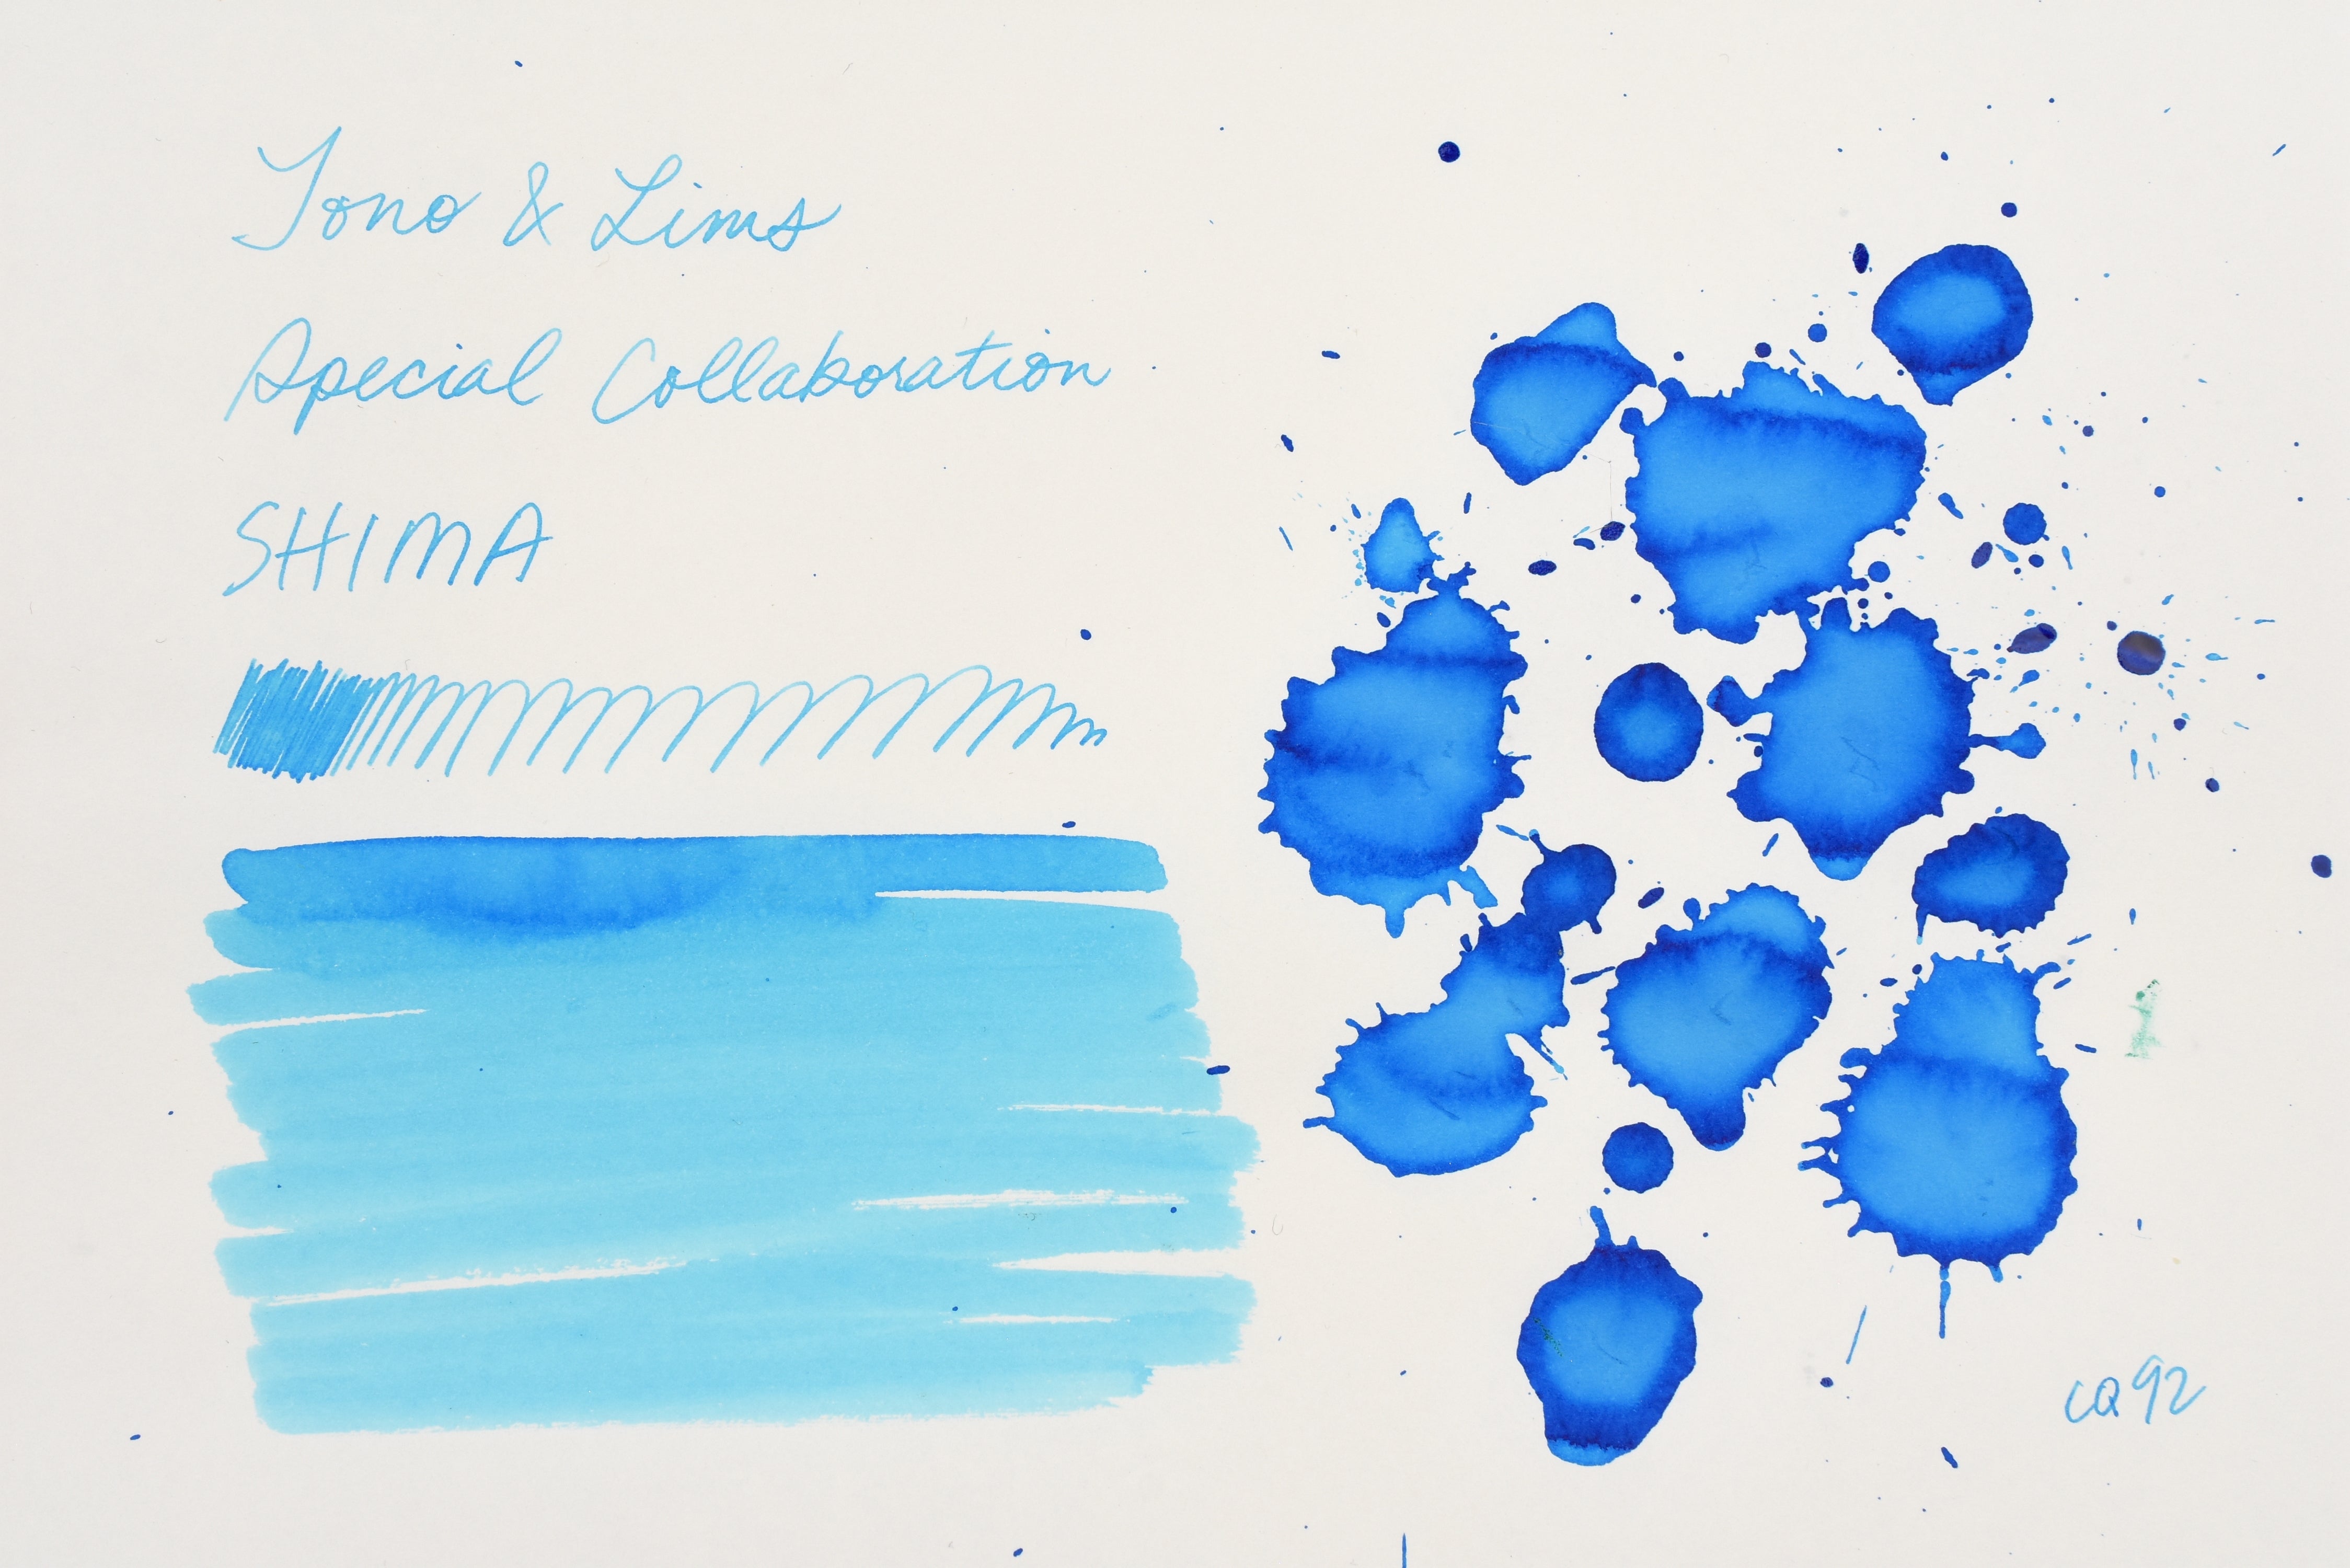 Tono & Lims
Special Collaboration
SHIMA
CQ92